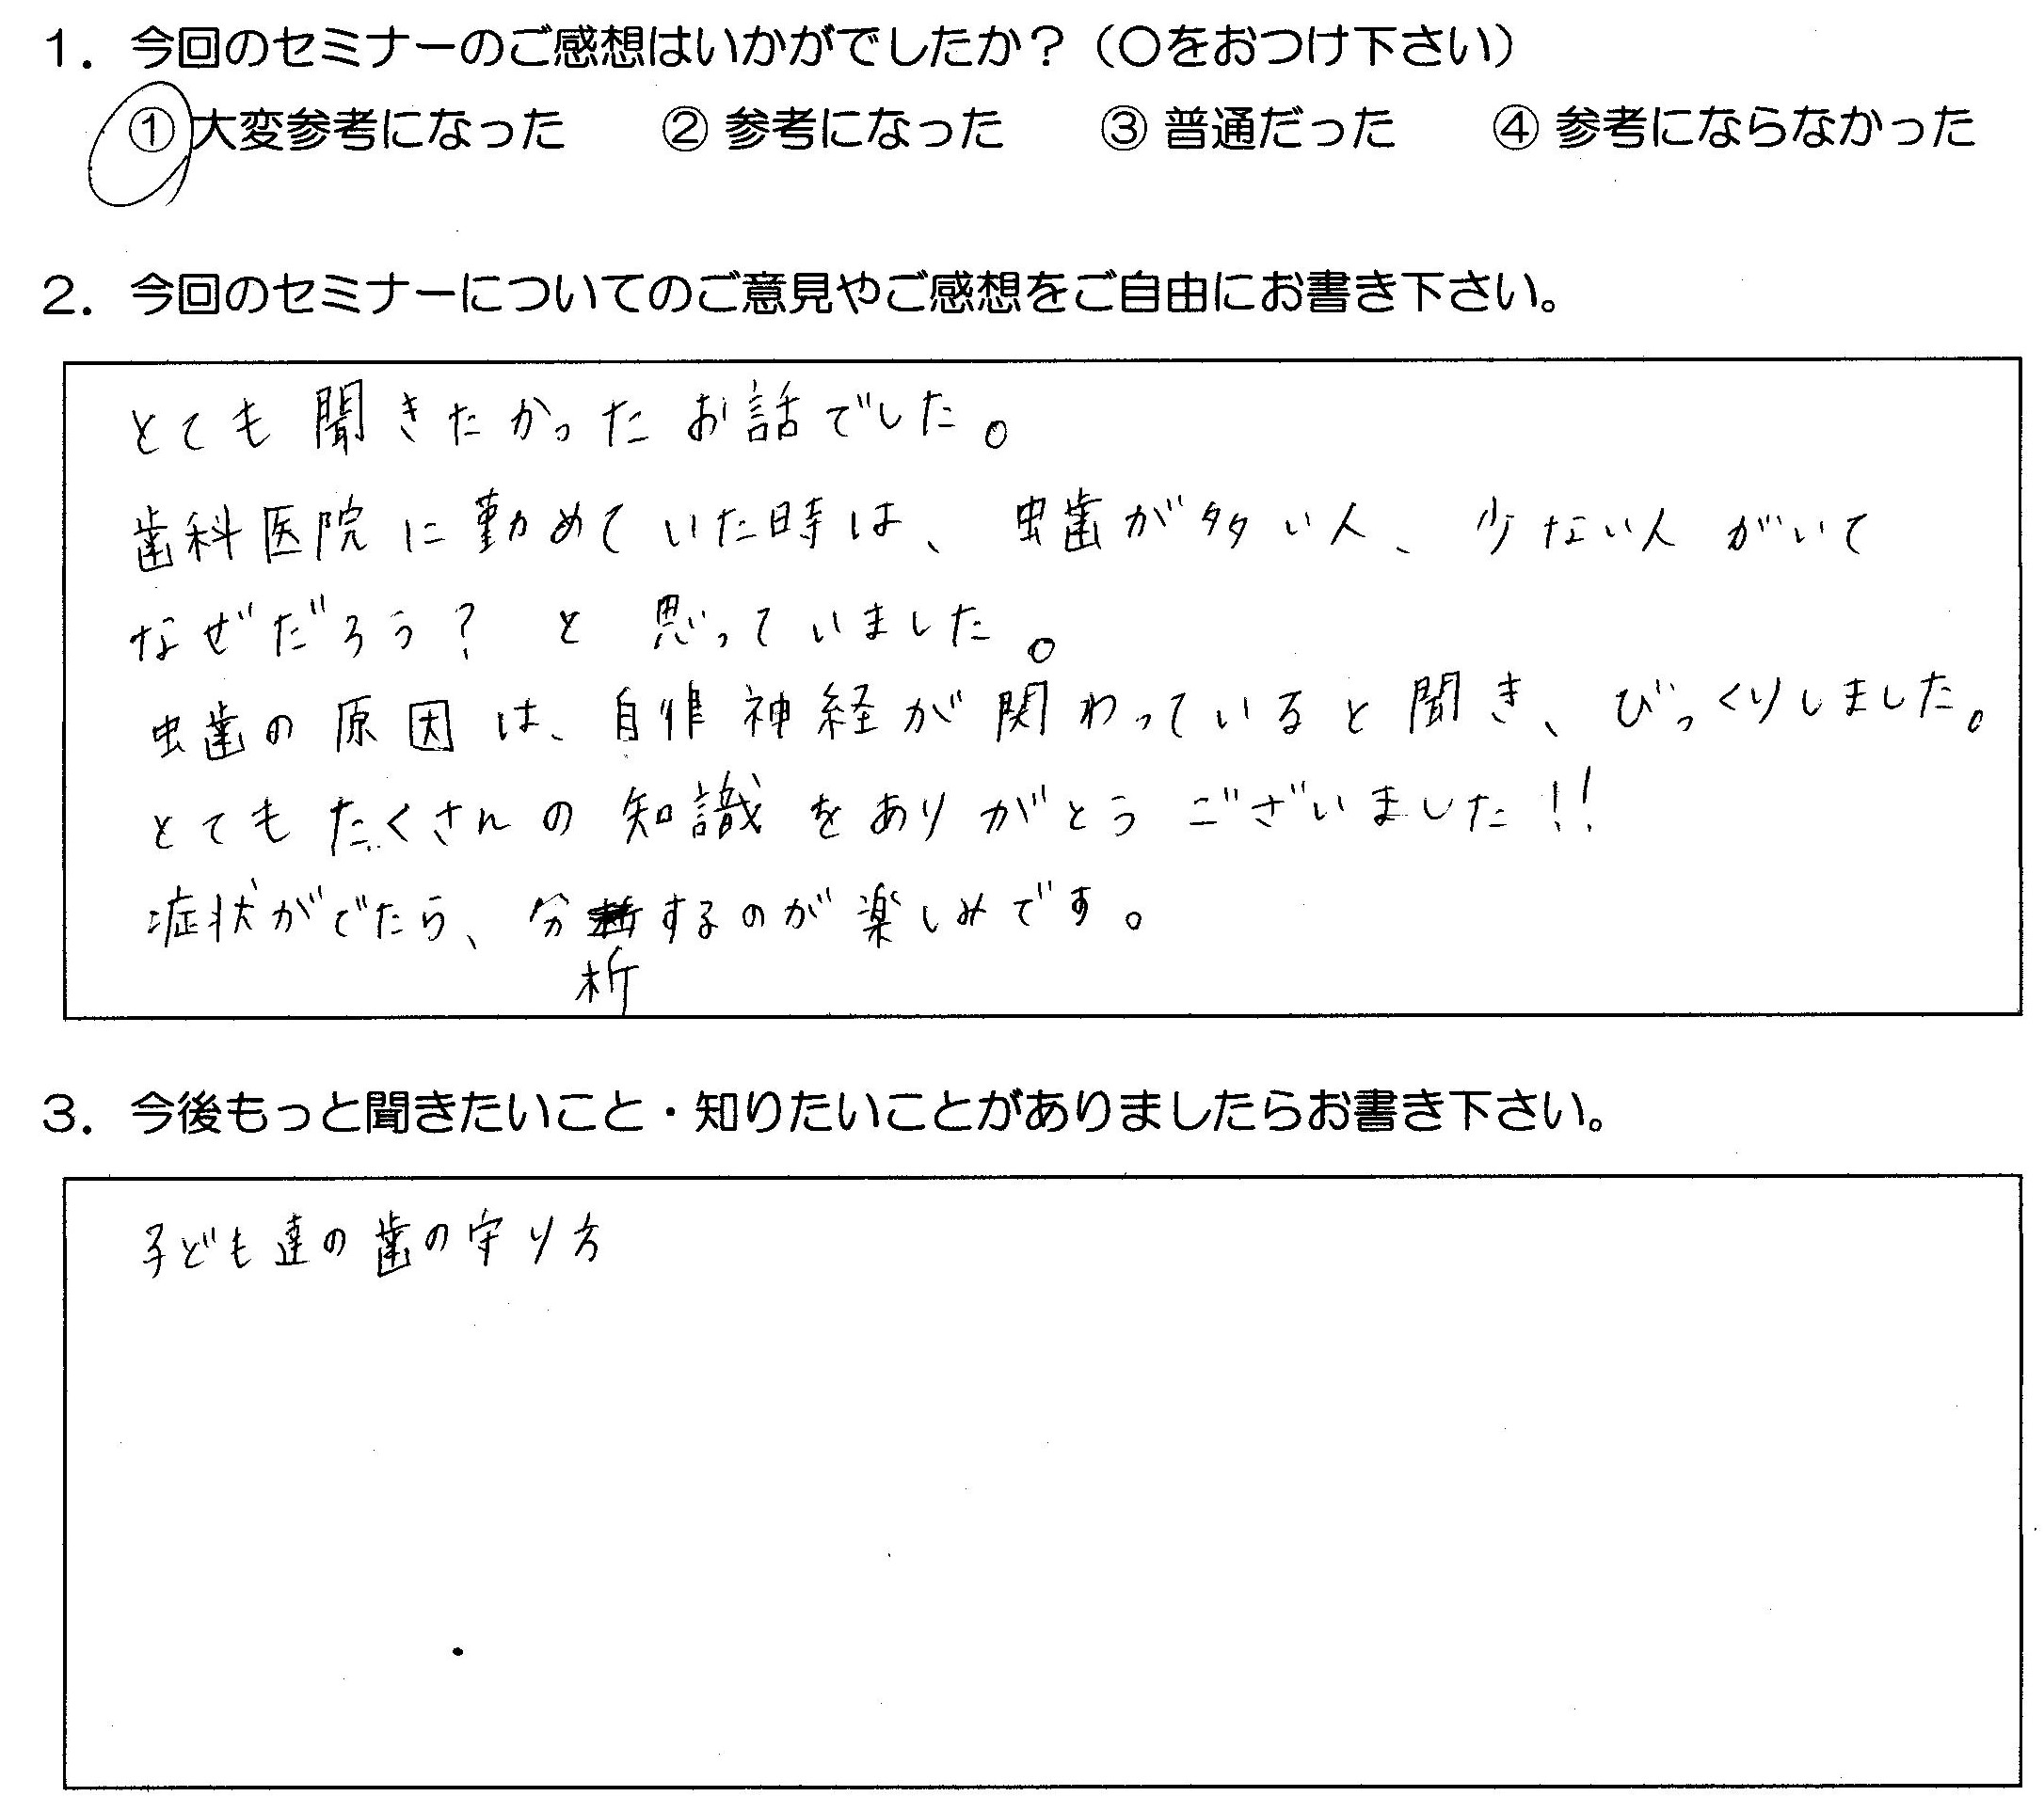 1. 今回のセミナーのご感想はいかがでしたか？（〇をおつけ下さい）
① 大変参考になった ② 参考になった ③ 普通だった ④ 参考にならなかった
2. 今回のセミナーについてのご意見やご感想をご自由にお書き下さい。
とても聞きたかったお話でした。
歯科医院に勤めていた時は、虫歯が多い人、少ない人がいて
なぜだろう？と思っていました。
虫歯の原因は、自律神経が関わっていると聞き、びっくりしました。
とてもたくさんの知識をありがとうございました!!
症状がでたら、分析するのが楽しみです。
3. 今後もっと聞きたいこと・知りたいことがありましたらお書き下さい。
子ども達の歯の守り方